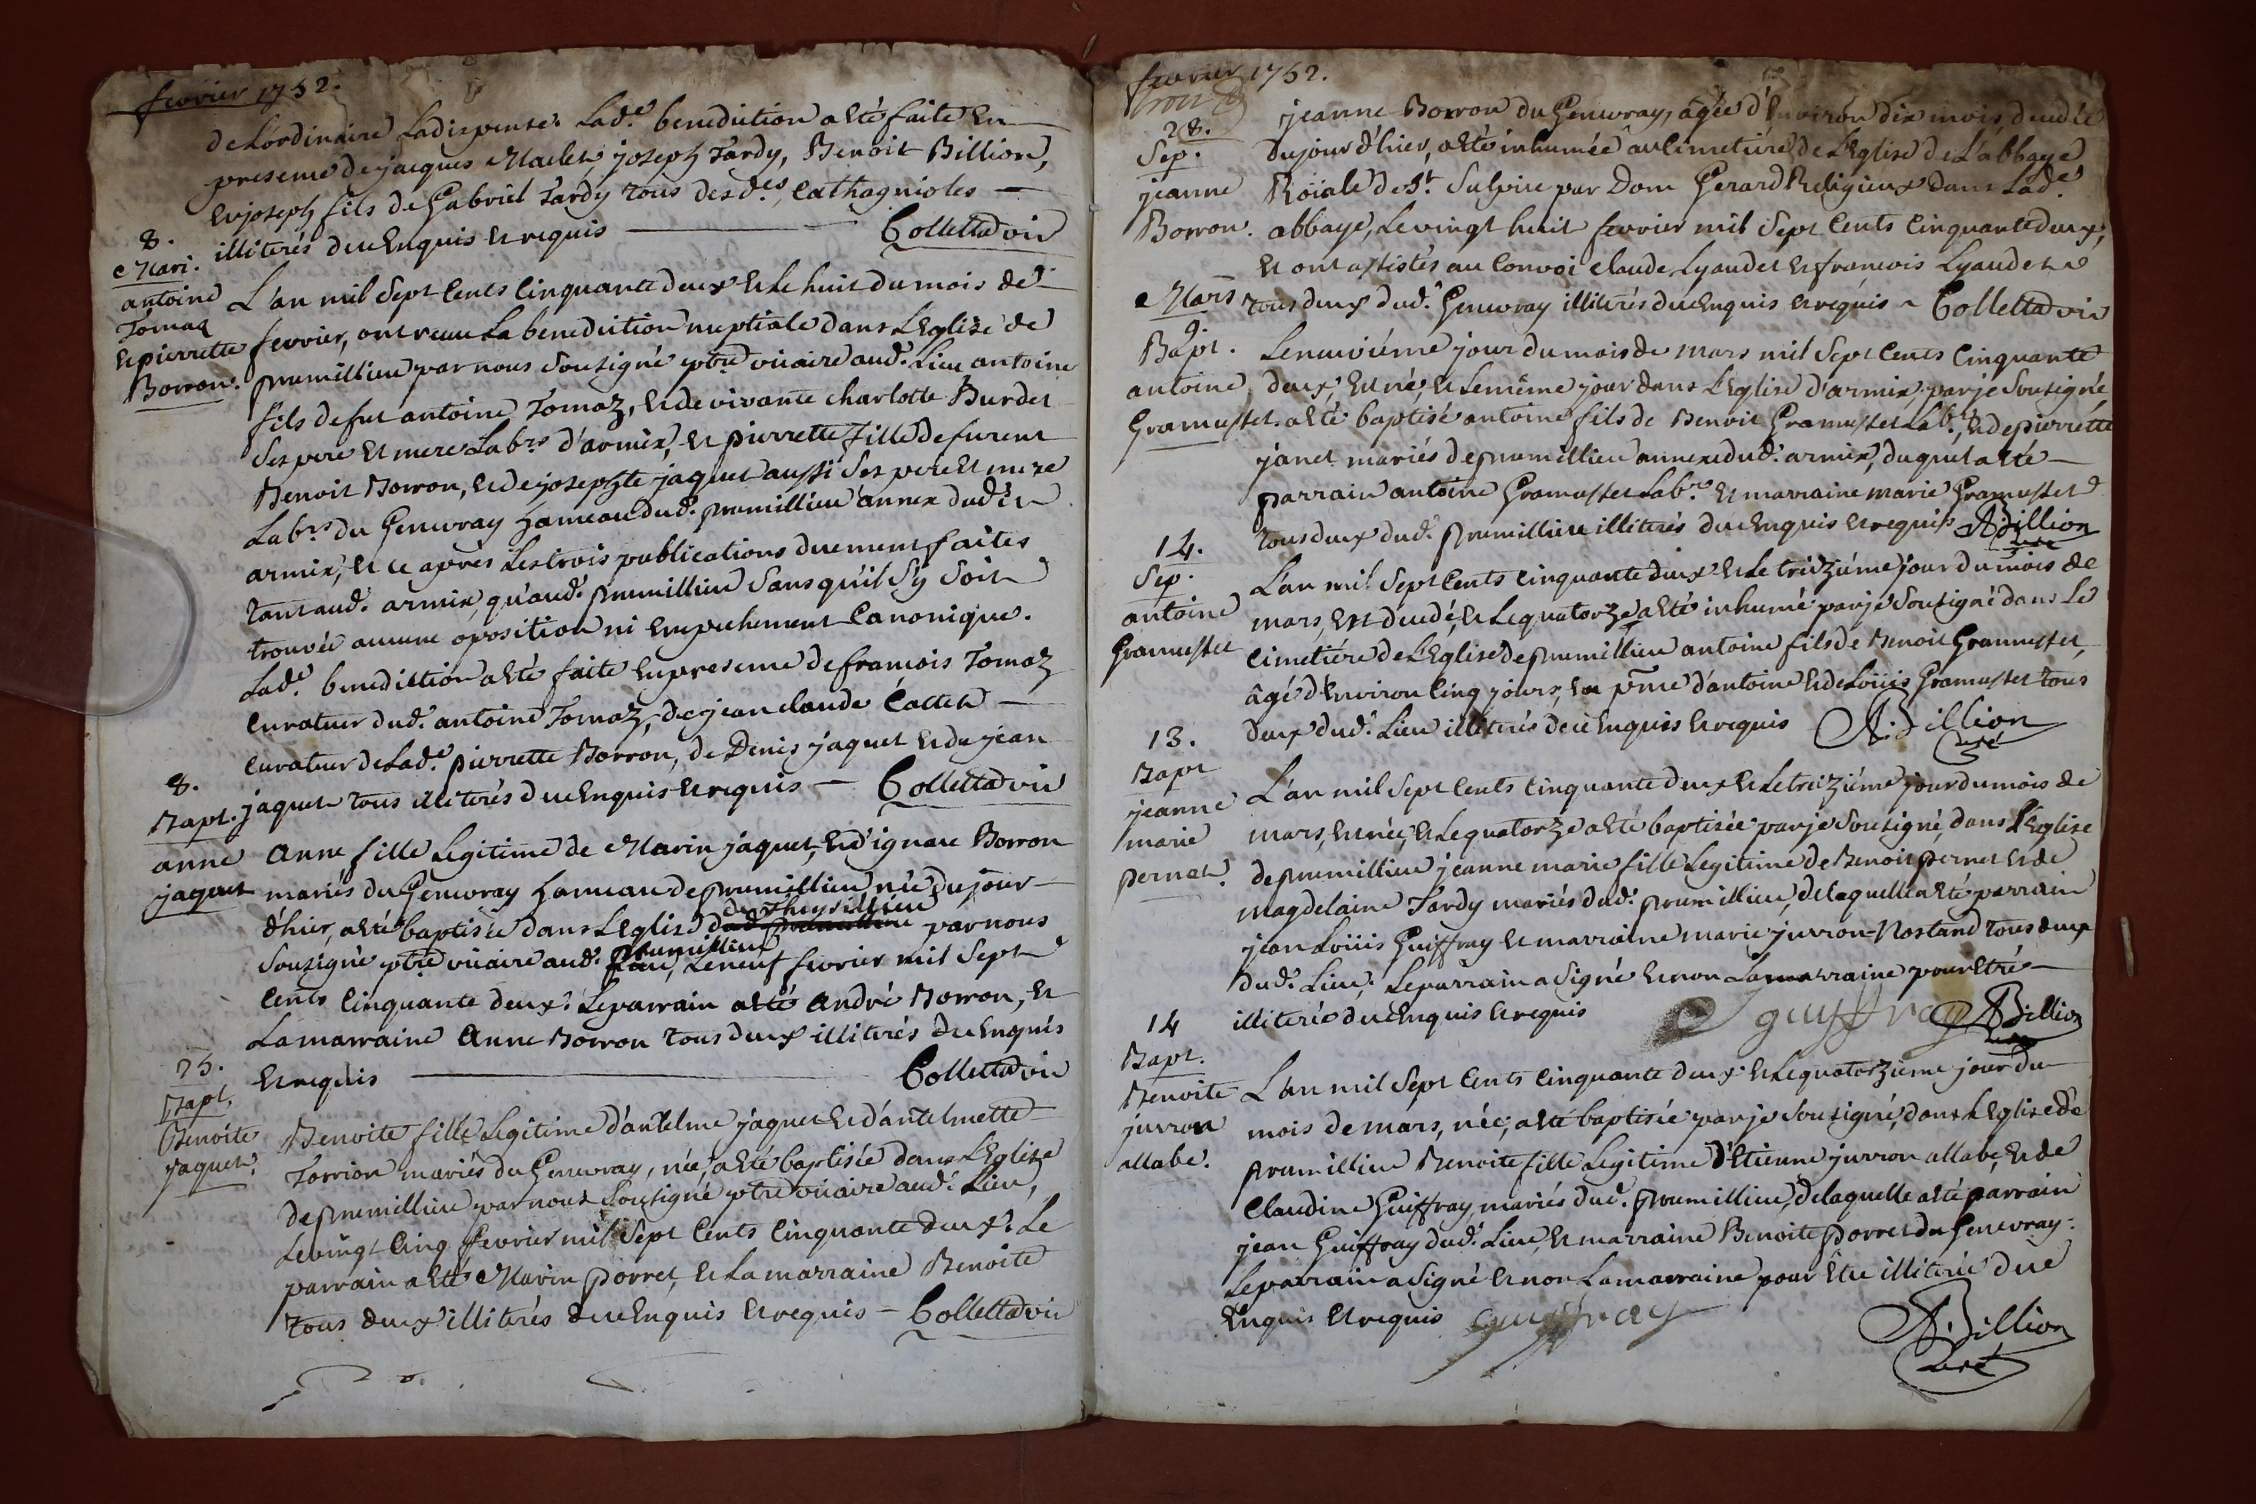 fevrier 1752.
de Lordinaire Ladispense. Lad.e benediction a êté faite en
presence de jacques Maclet, joseph Tardy, Benoit Billion,
et joseph fils de Gabriel Tardy tous des d.es Cathagnioles —
illiterés de ce enquis et requis — Colletta vic
8.
Mari.
antoine
Tomaz
et pierrette
Borron.
L'an mil Sept Cents Cinquante deux et Le huit du mois de
fevrier, ont receu La benediction nuptiale dans L'Eglise de
prumillieu par nous Sousigné ptre vicaire aud.t Lieu antoine
fils de fut antoine Tomaz, et de vivante charlotte Burdet
Ses pere et mere Lab.rs d'armix, et pierrette fille de furent
Benoit Borron, et de josephte jaquet aussi Ses pere et mere
Lab.rs du Genevray hameau dud.t prumillieu annex dud.t
armix, et ce après Les trois publications duement faites
tant aud.t armix, qu'aud.t prumillieu Sans qu'il S'y Soit
trouvée aucune oposition ni empechement Canonique.
Lad.e benediction a êté faite en presence de francois Tomaz
Curateur dud.t antoine Tomaz, de jean claude Cattet —
Curateur de Lad.e pierrette Borron, de Denis jaquet et de jean
jaquet tous illiterés de ce enquis et requis — Colletta vic
8.
Bapt.
anne
jaquet
Anne fille Legitime de Marin jaquet, et d'ignace Borron
mariés du Genevray hameau de prumillieu née du jour
d'hier, a êté baptisée dans L'Eglise de Theysillieu par nous
Sousigné ptre vicaire aud.t prumillieu, Le neuf fevrier mil Sept
Cents Cinquante deux. Le parrain a êté André Borron, et
La marraine Anne Borron tous deux illiterés de ce Enquis
et requis — Colletta vic
25.
Bapt.
Benoite
jaquet.
Benoite fille Legitime d'antelme jaquet et d'antelmette
Torrion mariés du Genevray, née, a êté baptisée dans L'Eglise
de prumillieu par nous Sousigné ptre vicaire aud.t Lieu,
Le vingt Cinq fevrier mil Sept Cents Cinquante deux. Le
parrain a êté Marin porret, et La marraine Benoite
tous deux illiterés de ce Enquis et requis — Colletta vic
fevrier 1752.
28.
Sep.
jeanne
Borron.
jeanne Borron du Genevray, agée d'Environ dix mois, decedée
du jour d'hier, a êté inhumée au Cimetiére de L'Eglise de L'abbaye
Roïale de St. Sulpice par Dom Gerard Religieux dans Lad.e
abbaye, Le vingt huit fevrier mil Sept Cents Cinquante deux,
et ont assistés au Convoi claude Lyaudet et francois Lyaudet
tous deux dud.t Genevray illiterés de ce enquis et requis ~ Colletta vic
Mars
9.
Bapt.
antoine
Gramusset.
Le neuviéme jour du mois de mars mil Sept Cents Cinquante
deux, Est né, et Le même jour dans L'Eglise d'armix, par je Sousigné,
a êté baptisé antoine fils de Benoit Gramusset Lab.r, et de pierrette
janet mariés de prumillieu annexe dud.t armix, duquel a êté —
parrain antoine Gramusset Lab.r et marraine marie Gramusset
tous deux dud.t prumillieu illiterés de ce Enquis et requis A. Billion
curé
14.
Sep.
antoine
Gramusset
L'an mil Sept Cents Cinquante deux et Le treiziéme jour du mois de
mars, est decedé, et Le quatorze a êté inhumé par je Sousigné dans Le
Cimetiére de L'Eglise de prumillieu antoine fils de Benoit Gramusset,
âgé d'Environ Cinq jours, en pñce d'antoine et de Loüis Gramusset tous
deux dud.t Lieu illiterés de ce Enquis et requis A. Billion
curé
13.
Bapt
jeanne
marie
pernet.
L'an mil Sept Cents Cinquante deux et Le treiziéme jour du mois de
mars, est née, et Le quatorze a êté baptisée par je Sousigné, dans L'Eglise
de prumillieu jeanne marie fille Legitime de Benoit pernet et de
Magdelaine Tardy mariés dud.t prumillieu, de laquelle a êté parrain
jean Loüis Guiffray et marraine marie jurron-Nostand tous deux
dud.t Lieu. Le parrain a Signé et non La marraine pour Etre —
illiterée de ce Enquis et requis guiffray A. Billion
curé
14
Bapt.
Benoite
jurron
allabe.
L'an mil Sept Cents Cinquante deux et Le quatorziéme jour du
mois de mars, née, a êté baptisée par je Sousigné, dans L'Eglise de
prumillieu Benoite fille Legitime d'Etienne jurron allabe, et de
Claudine Guiffray, mariés dud.t prumillieu, de laquelle a êté parrain
jean Guiffray dud.t Lieu, et marraine Benoite porret du Genevray.
Le parrain a Signé et non La marraine pour Etre illiterée de ce
Enquis et requis guiffray
A. Billion
curé